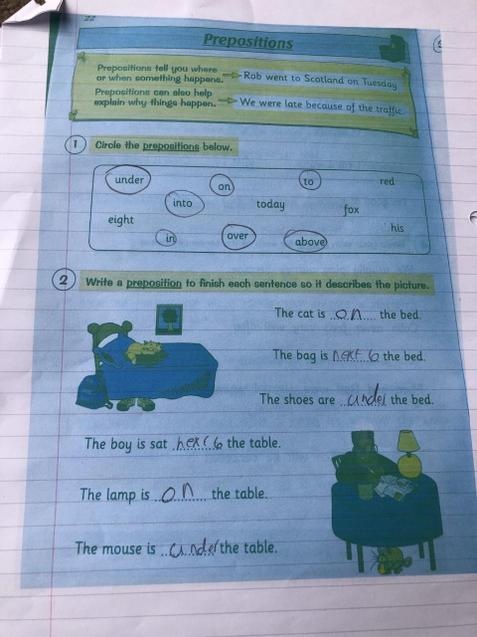 22
Prepositions
Prepositions tell you where
or when something happens.
Rob went to Scotland on Tuesday
Prepositions can also help
explain why things happen.
We were late because of the traffic.
1 Circle the prepositions below.
under on to red
into today fox
eight his
in over above
2 Write a preposition to finish each sentence so it describes the picture.
The cat is on the bed.
The bag is next to the bed.
The shoes are under the bed.
The boy is sat next to the table.
The lamp is on the table.
The mouse is under the table.